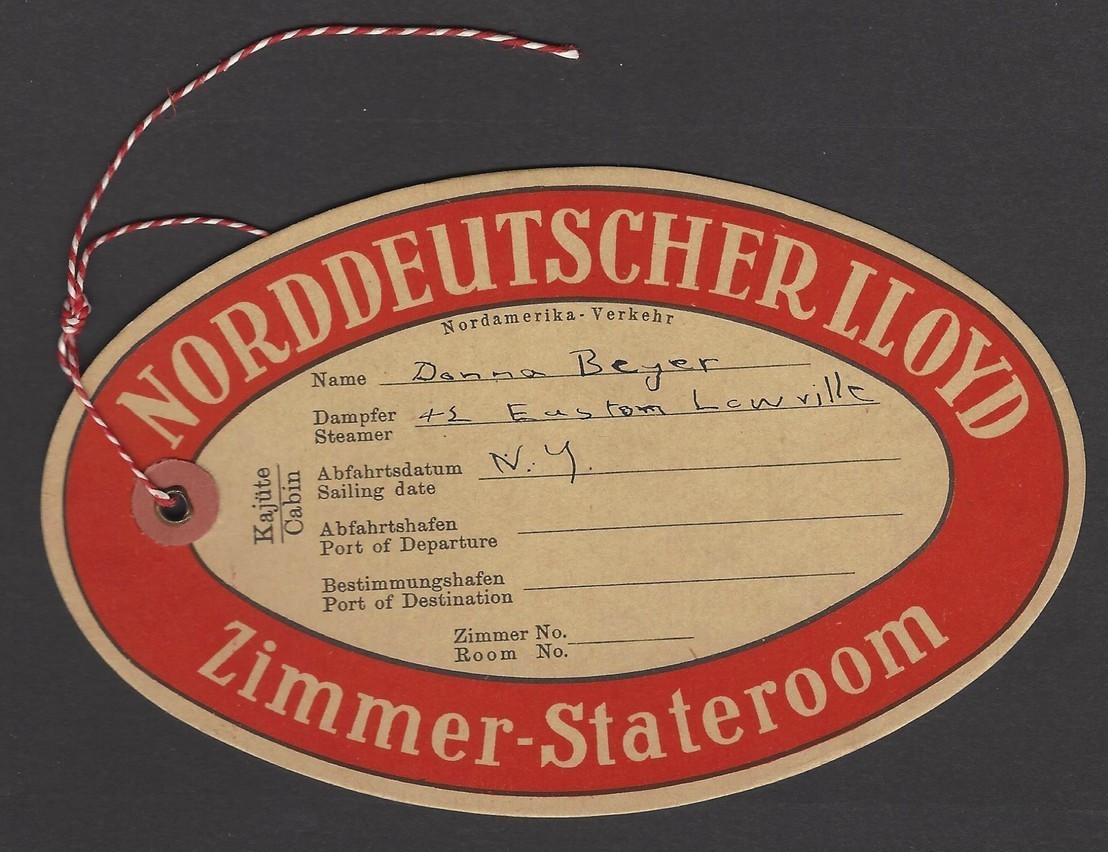 NORDDEUTSCHER LLOYD
Nordamerika-Verkehr
Name Donna Beyer
Dampfer
Steamer
42 Eastom Lowville
Abfahrtsdatum
Sailing date
N.Y.
Kajüte
Cabin
Abfahrtshafen
Port of Departure
Bestimmungshafen
Port of Destination
Zimmer No.
Room No.
Zimmer-Stateroom